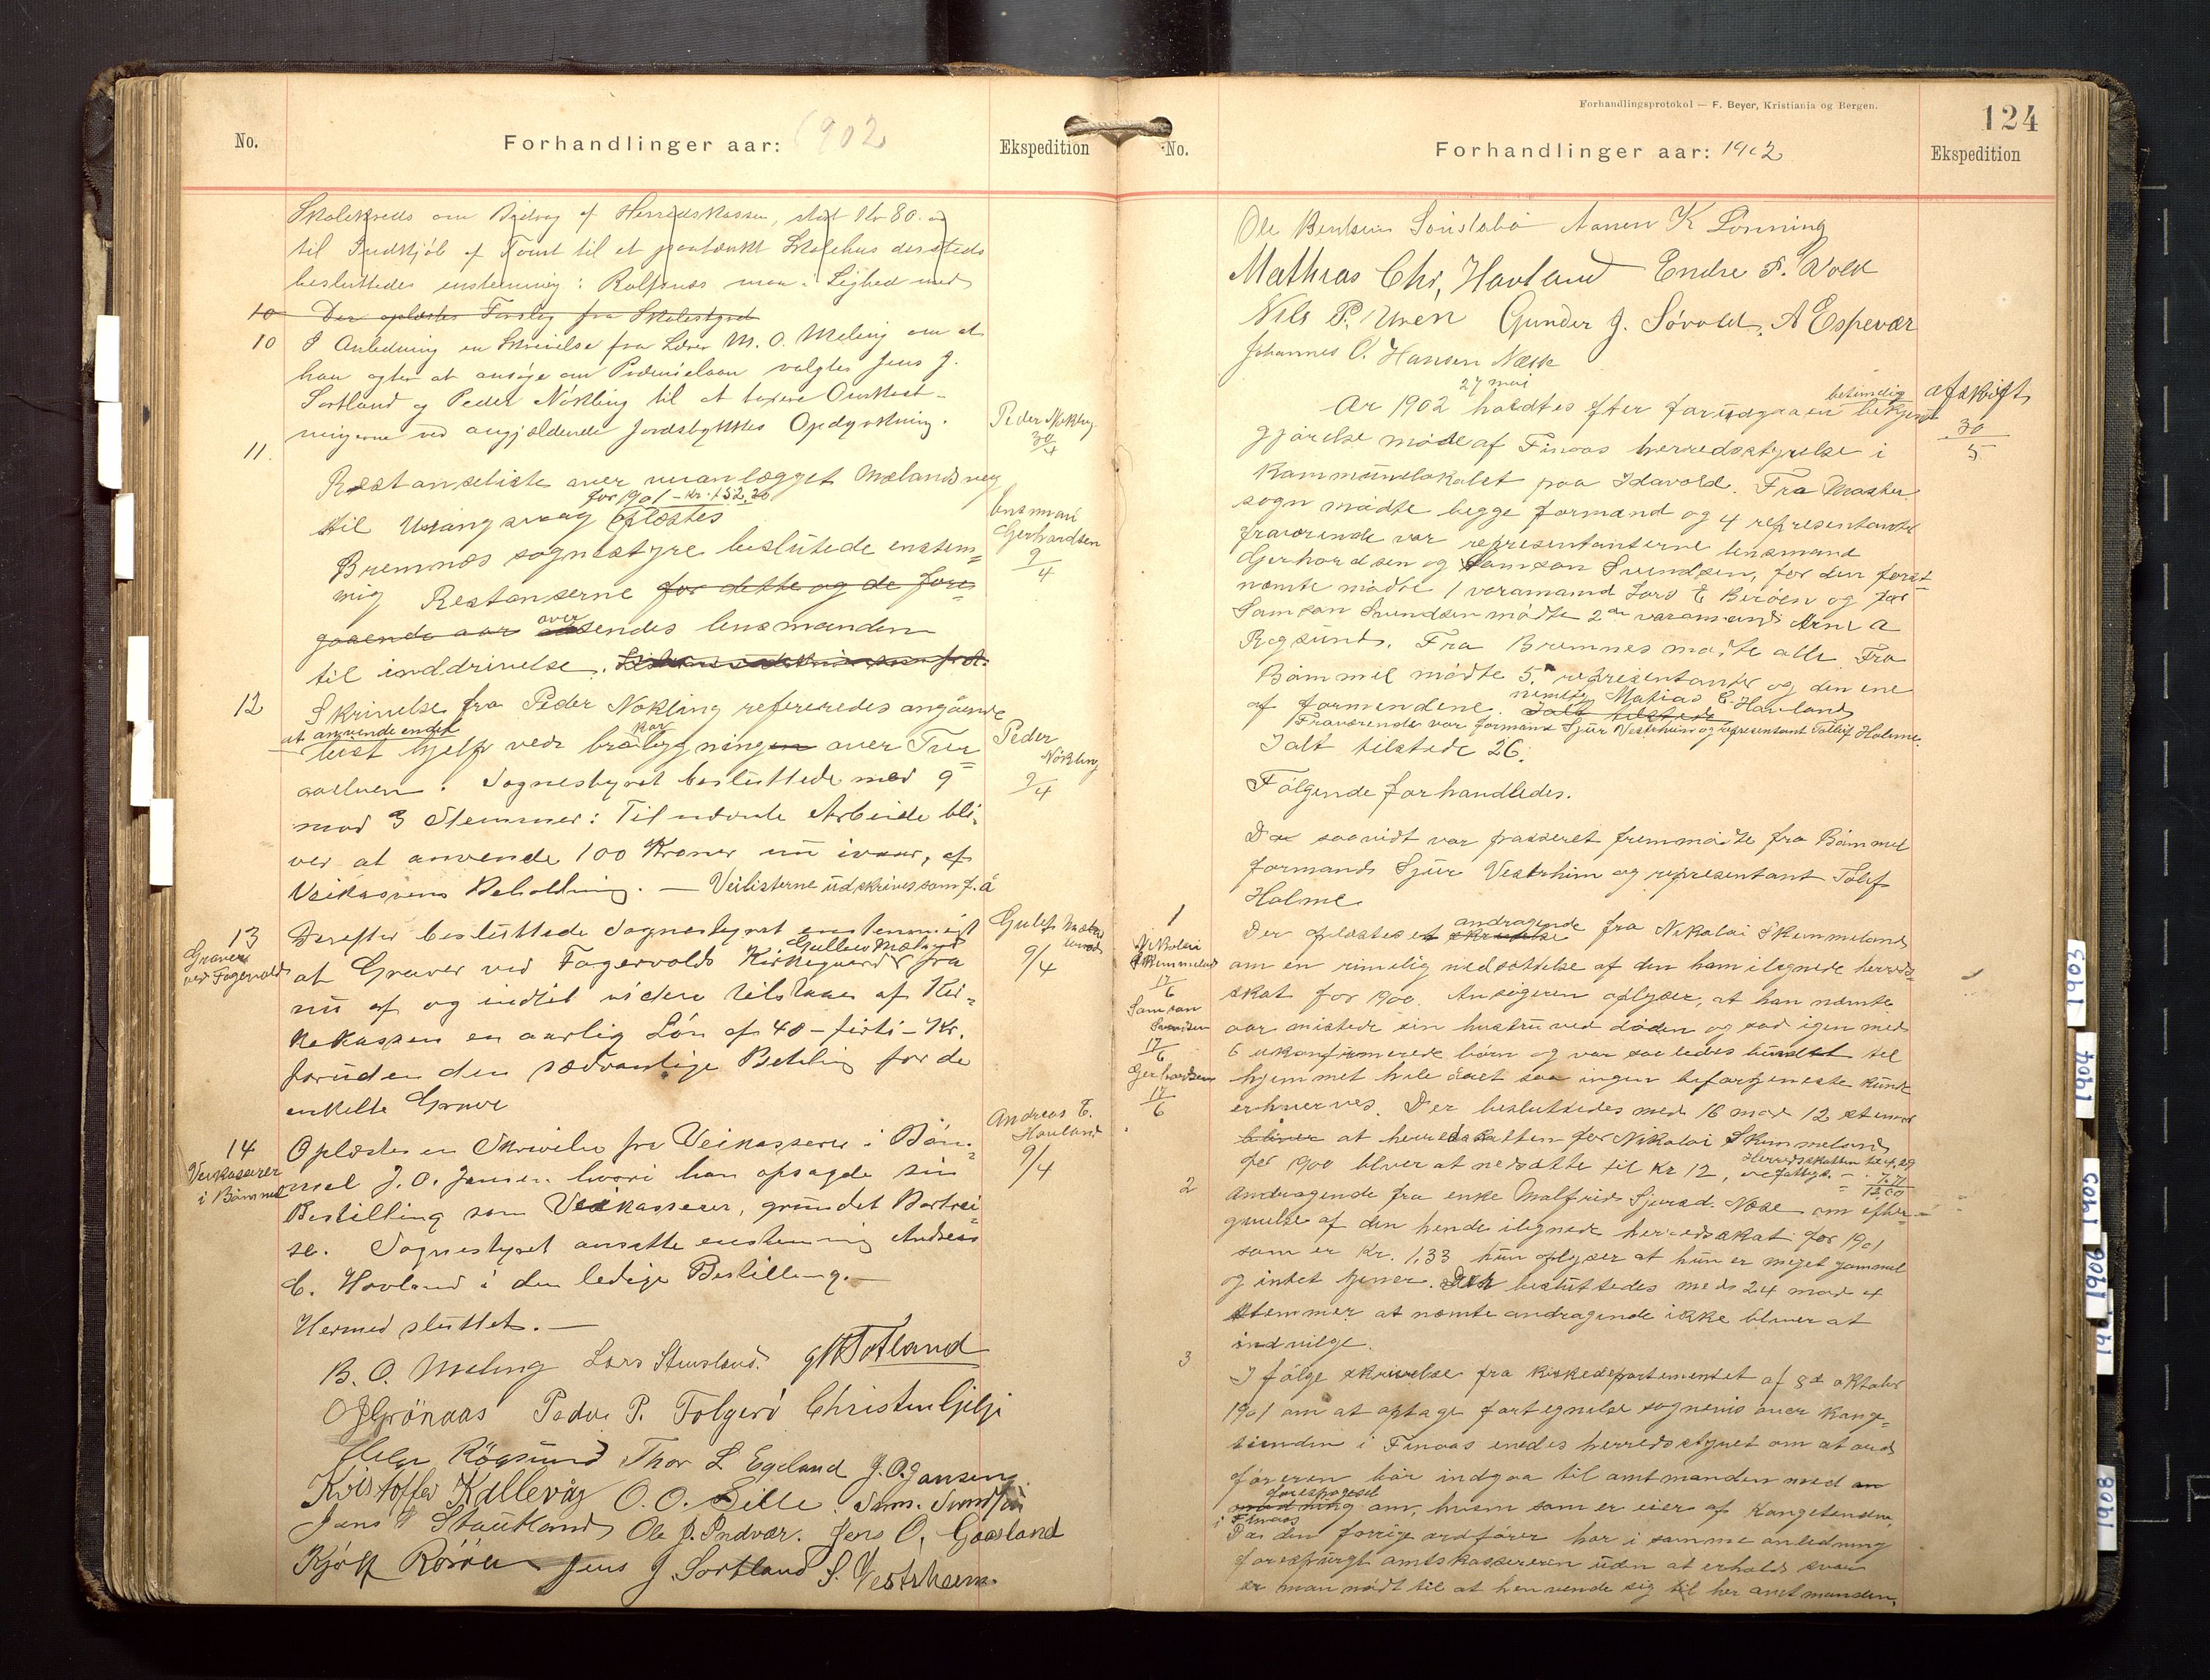 No.
Forhandlinger aar: 1902
Ekspedition
Skolekreds om Bidrag af Herredskassen, stort Kr 80.
til Indkjöb af Tomt til et paatænkt Skolehus dersteds
besluttedes enstemmig: Rolfsnæs maa i Lighed med
10 Der oplæstes Forslag fra Skolestyret
10 I Anledning en Skrivelse fra Lærer M. O. Meling om at
han agter at ansøge om Præmielaan valgtes Jens J.
Sortland og Peder Nökling til at taxere Omkost-
ningerne ved angjældende Jordstykkes Opdyrkning.
Peder Nökling
30/4
11.
Restanseliste over uuanlægget Mælandsveg
for 1901 - kr. 152,20
til Urangsvaag oplæstes
Bremnæs sognestyre beslutede enstem=
mig Restanserne for dette og de fore=
gaaende aar over sendes lensmanden
til inddrivelse.
Lensman
Gerhardsen
9/4
12 Skrivelse fra Peder Nökling refereredes angående
at anvende endel
leiet hjelp ved brobygningen over
aaelven. Sognestyret besluttede med 9
mod 3 Stemmer: Til nævnte Arbeide bli-
ver at anvende 100 Kroner nu ivaar, af
Veikassens Beholdning. — Veilisterne udskrives som f. å
Peder
Nökling
9/4
13
Graver
ved Fagervold
Derefter besluttede Sognestyret enstemmigt
Gulleiv Mæland
at Graver ved Fagervolds Kirkegaard fra
nu af og indtil videre tilstaaes af Kir-
kekassen en aarlig Lön af 40 - firti - Kr.
foruden den sædvanlige Betaling for de
enkelte Grave
9/4
14
Veikasserer
i Bömmel
Oplæstes en Skrivelse fra Veikasserer i Böm-
mel J. O. Jansen hvori han opsagde sin
Bestilling som Veikasserer, grundet Bortrei-
se. Sognestyret ansatte enstemmig Andreas
E. Hovland i den ledige Bestilling. —
Andreas E.
Havland
9/4
Hermed sluttet. —
B. O. Meling Lars Stensland. Totland
O J Grönaas Peder P. Folgerö Christen Gjelje
Helge Rögsund Thor L Egeland J. O. Jansen
Kristoffer Kallevåg O. O. Lille. Sams. Svendsen
Jens Stautland Ole J. Indvær. Jens O. Gaasland
Jens J Sortland S. Vestrheim
Forhandlingsprotokol — F. Beyer, Kristiania og Bergen.
124
No.
Forhandlinger aar: 1902
Ekspedition
Ole Bentsen Sönstabö Aanen K Lönning
Mathias Chr, Havland Endre P. Vold
Nils P. Uren Gunder J. Sövold. A Espevær
Johannes O. Hansen Næsse
27 mai
betimelig
Ar 1902 holdtes efter forudgaaen bekjent
gjörelse möde af Finaas herredsstyrelse i
kommunelokalet paa Idavold. Fra Moster
sogn mödte begge formænd og 4 representanter
fraværende var representanterne lensmand
Gerhardsen og Samson Svendsen, for den först
næmte mödte 1 varamand Lars E Beröen og for
Samson Svendsen mödte 2den varamand Arne A
Rogsund. Fra Bremnes mödte alle Fra
Bömmel mödte 5 representanter og den ene
af formendene. nemlig Matias C. Havland
Fraværende var formand Sjur Vestrheim og representant Tollef Holme.
Ialt tilstede 26.
afskrift
30/5
Fölgende forhandledes.
Da saavidt var passeret fremmödte fra Bömmel
formand Sjur Vestrheim og representant Tolef
Holme
1
Nikolai
Skimmeland
17/6
Samson
Svendsen
17/6
Gerhardsen
17/6
andragende
Der oplæstes et skrivelse fra Nikolai Skimmeland
om en rimelig nedsættelse af den ham ilignede herreds-
skat for 1900. Ansögeren oplyser, at han næmte
aar mistede sin hustru ved döden og sad igen med
6 ukonfirmerede börn og var saaledes bundet til
hjemmet hele aaet saa ingen bifortjeneste kunde
erhverves. Der besluttedes med 16 mod 12 stemmer
bliver at herredsskatten for Nikolai Skimmeland
for 1900 bliver at nedsætte til Kr 12,
2 Andragende fra enke Malfrid Sjursd. Næse om efter-
givelse af den hende ilignede herredsskat for 1901
som er Kr. 1,33 hun oplyser at hun er meget gammel
og intet tjener. Der besluttedes med 24 mod 4
stemmer at næmte andragende ikke bliver at
indvilge.
3
I fölge skrivelse fra kirkedepartementet af 8de oktober
1901 om at optage fortegnelse sognevis over Konge-
tienden i Finaas enedes herredsstyret om at ord
föreren bör indgaa til amtmanden med an
forespögsel
modning om, hvem som er eier af Kongetienden,
i Finaas
Da den forrige ordförer har i samme anledning
forespurgt amtskassereren uden at erholde svar
er man nödt til at henvende sig til her amtmanden.
1903
1904
1905
1906
1908